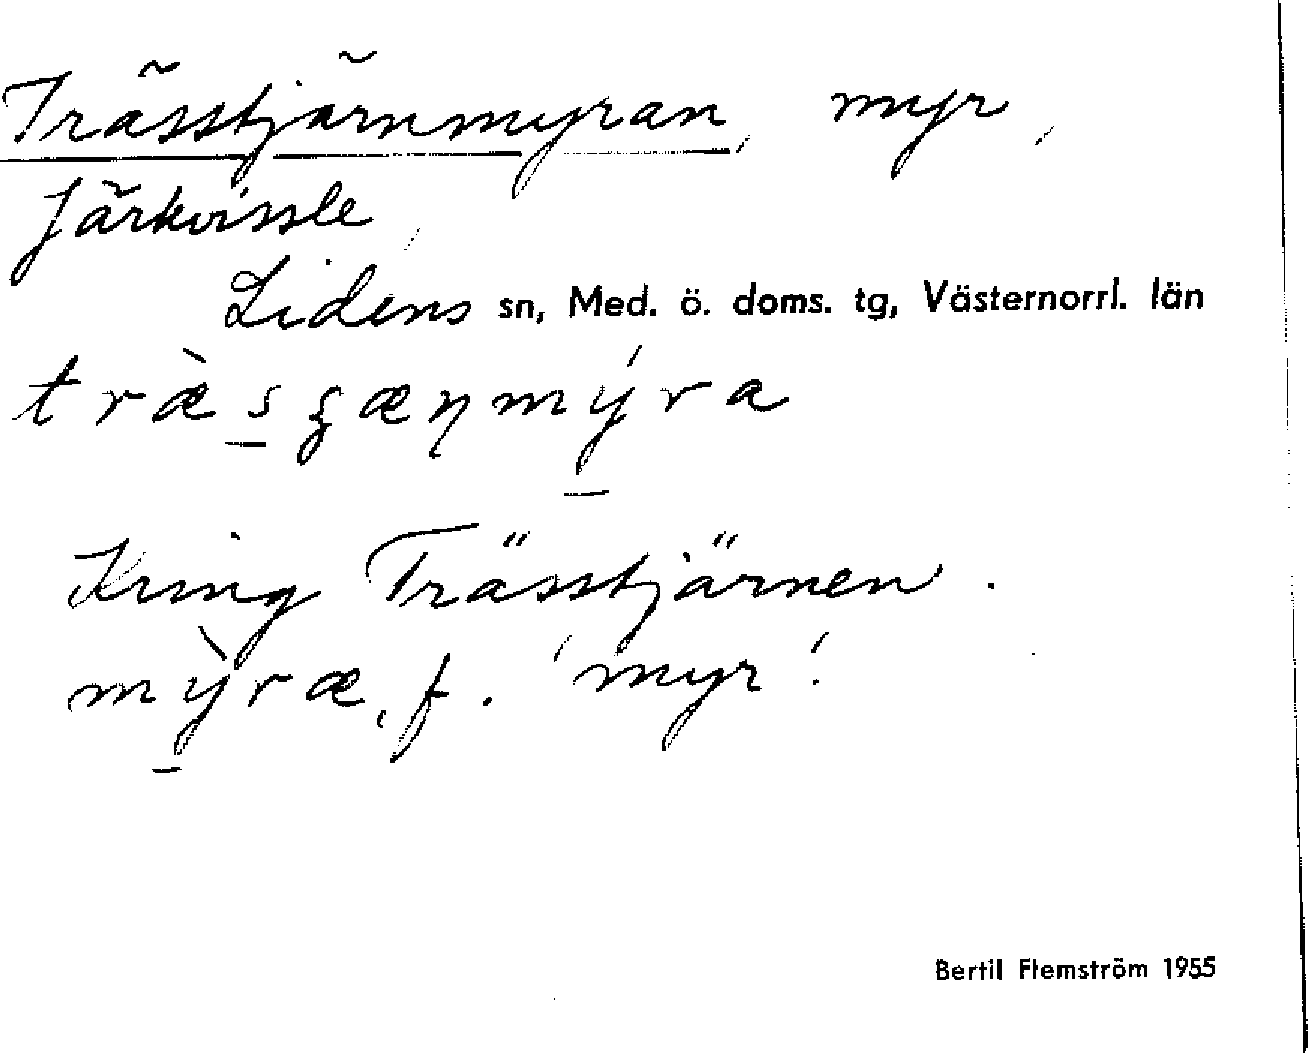 Trässtjärnmyran, myr,
Järkvissle,
Lidens sn, Med. ö. doms. tg, Västernorrl. län
træ̀s̠ʒæɳmý̠ra
Kring Trässtjärnen.
mỳ̠ræ, f. 'myr'.
Bertil Flemström 1955